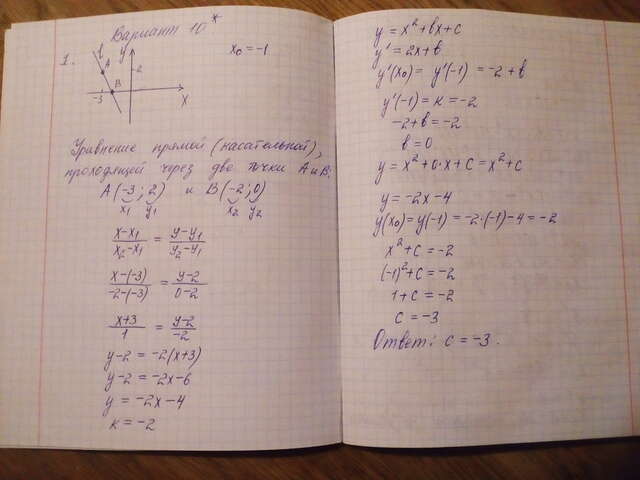 Вариант 10*
1.
x₀ = -1
b
A
B
y
2
-3
x
Уравнение прямой (касательной),
проходящей через две точки А и В:
A(-3; 2) и B(-2; 0)
x₁ y₁ x₂ y₂
(x-x₁)/(x₂-x₁) = (y-y₁)/(y₂-y₁)
(x-(-3))/(-2-(-3)) = (y-2)/(0-2)
(x+3)/1 = (y-2)/(-2)
y-2 = -2(x+3)
y-2 = -2x-6
y = -2x-4
к = -2
y = x²+bx+c
y' = 2x+b
y'(x₀) = y'(-1) = -2+b
y'(-1) = к = -2
-2+b = -2
b = 0
y = x²+0·x+c = x²+c
y = -2x-4
y(x₀) = y(-1) = -2·(-1)-4 = -2
x²+c = -2
(-1)²+c = -2
1+c = -2
c = -3
Ответ: c = -3.